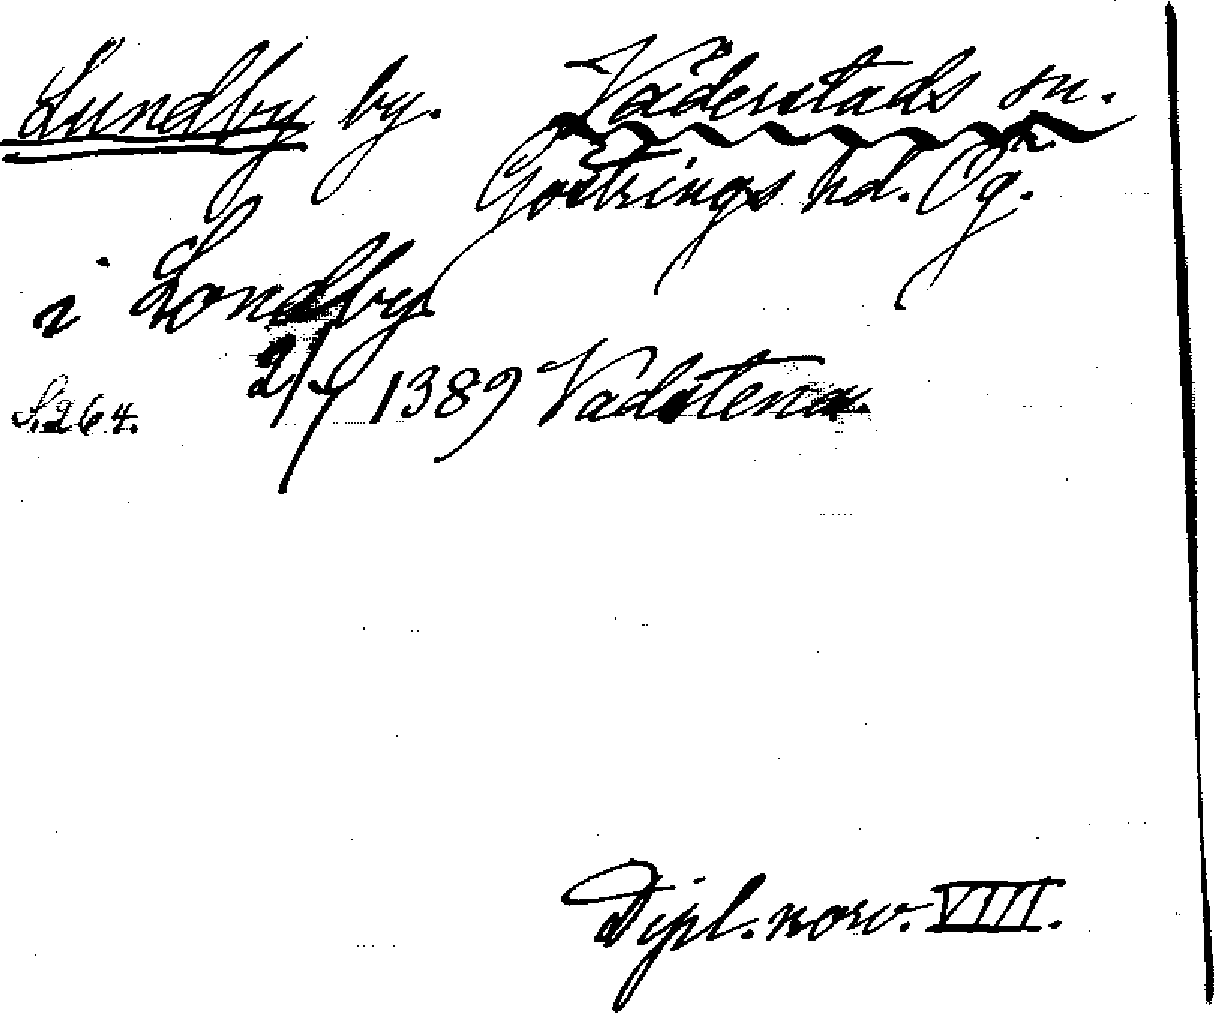 Lundby by. Väderstads sn.
Göstrings hd. Ög.
i Londby
S. 264. 2/7 1389 Vadstena.
Dipl. norv. VIII.